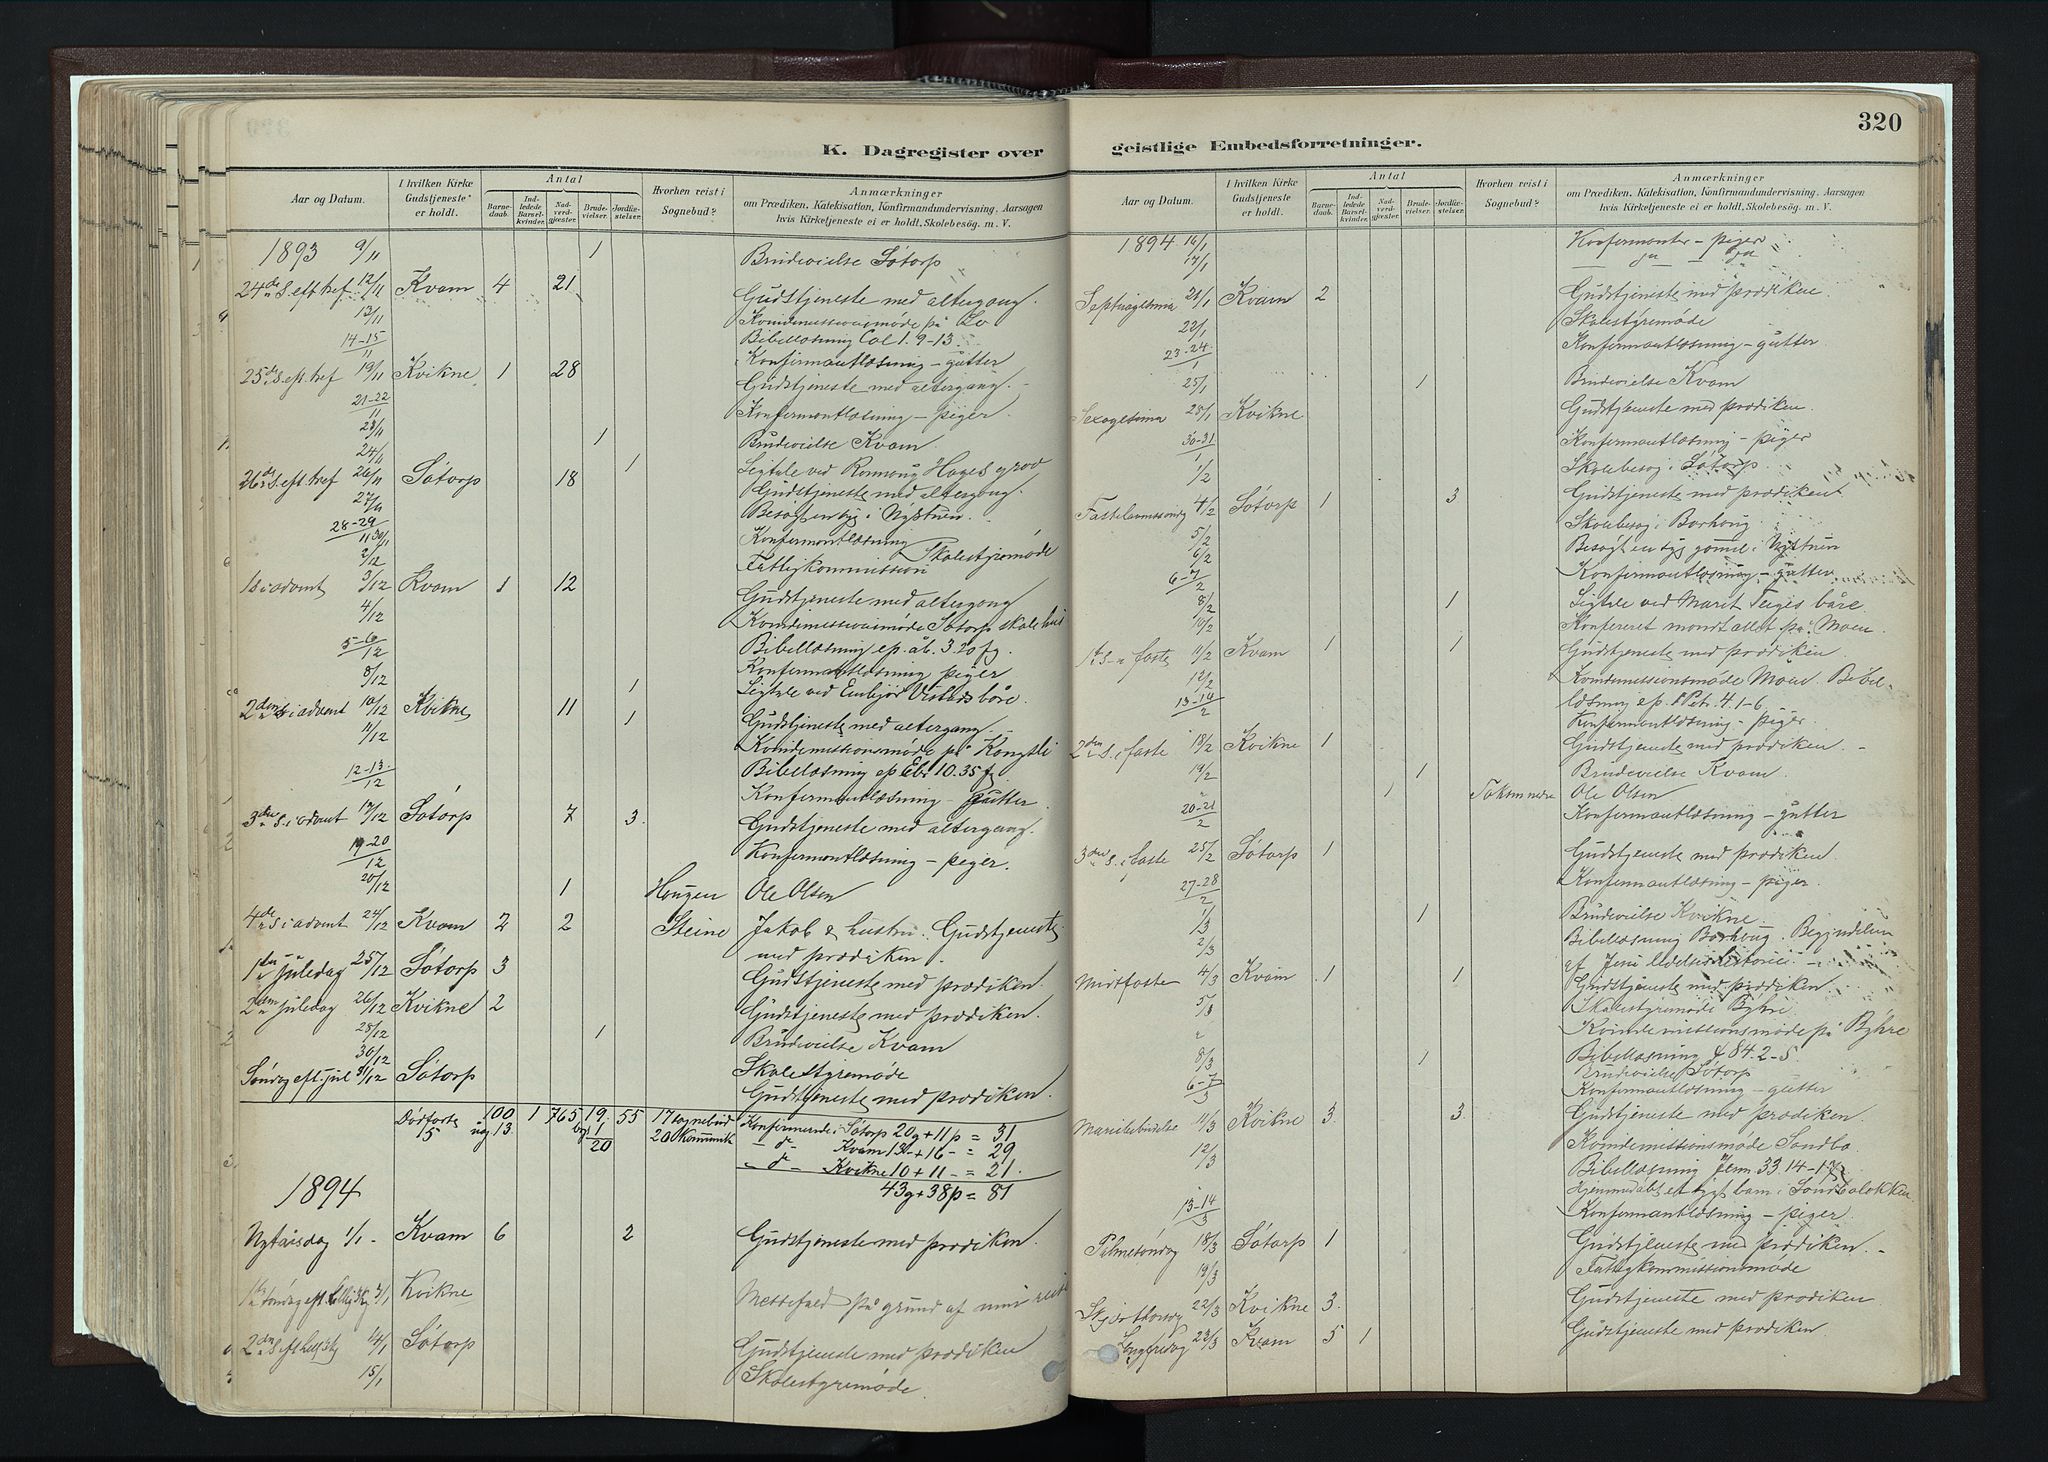 K. Dagregister over
Aar og Datum. I hvilken Kirke Gudstjeneste er holdt. Antal Barnedaab. Indledede Barselkvinder. Nadverdgjæster. Brudevielser. Jordfæstelser. Hvorhen reist i Sognebud? Anmærkninger om Prædiken, Katekisation, Konfirmandundervisning, Aarsagen hvis Kirketjeneste ei er holdt, Skolebesøg. m. V.
1893 9/11 1 Brudevielse Sótorp
24de S. eft. tref 12/11 Kvam 4 21 Gudstjeneste med altergang.
13/11 Kvindemissionsmøde på Lo
Bibellæsning Col 1. 9-13.
14-15/11 Konfirmantlæsning - gutter
25de S. eft. tref 19/11 Kvikne 1 28 Gudstjeneste med altergang.
21-22/11 Konfirmantlæsning - piger
23/11 1 Brudevielse Kvam
24/11 1 Ligtale ved Ronnoug Hages grav
26de S. eft tref 26/11 Sótorp 18 Gudstjeneste med altergang.
27/11 Besøgt en syg i Nystuen.
28-29/11 Konfirmantlæsning
30/11 Skolestyremøde
2/12 Fattigkommission
1 S i advent 3/12 Kvam 1 12 Gudstjeneste med altergang
4/12 Kvindemissionsmøde Sótorp skolehus
Bibellæsning ep. åb. 3. 20 fg.
5-6/12 Konfirmantlæsning piger
8/12 1 Ligtale ved Vistads båre.
2den S i advent 10/12 Kvikne 11 1 Gudstjeneste med altergang
11/12 Kvindemissionsmøde på Kongsli
Bibellæsning ep Ebr 10. 35 f.
12-13/12 Konfirmantlæsning - gutter
3die S. i advent 17/12 Sótorp 7 3 Gudstjeneste med altergang.
19-20/12 Konfirmantlæsning - piger.
20/12 1 Haugen Ole Olsen
4de S i advent 24/12 Kvam 2 2 Steine Jakob & hustru. Gudstjeneste
med prædiken.
1ste juledag 25/12 Sótorp 3 Gudstjeneste med prædiken.
2den juledag 26/12 Kvikne 2 Gudstjeneste med prædiken.
28/12 1 Brudevielse Kvam
30/12 Skolestyremøde
Søndag eft jul 31/12 Sótorp Gudstjeneste med prædiken.
100 1 765 19 55 17 sognebud Konfirmerede i Sótorp 20g + 11p = 31
15 ug. 13 1 20 kommunik - d - Kvam 13 - + 16 - = 29
20 - d - Kvikne 10 + 11 - = 21.
43g + 38p = 81
1894
Nytårsdag 1/1 Kvam 6 2 Gudstjeneste med prædiken.
7/1 Kvikne Messefald på grund af min reise
2den S. 14/1 Sótorp Gudstjeneste med prædiken
15/1 Skolestyremøde
320
geistlige Embedsforretninger.
Aar og Datum. I hvilken Kirke Gudstjeneste er holdt. Antal Barnedaab. Indledede Barselkvinder. Nadverdgjæster. Brudevielser. Jordfæstelser. Hvorhen reist i Sognebud? Anmærkninger om Prædiken, Katekisation, Konfirmandundervisning, Aarsagen hvis Kirketjeneste ei er holdt, Skolebesøg. m. V.
1894 16/1 Konfirmanter - piger
17/1
Septuagesima 21/1 Kvam 2 Gudstjeneste med prædiken
22/1 Skolestyremøde
23-24/1 Konfirmantlæsning - gutter
25/1 1 Brudevielse Kvam
Sexagesima 28/1 Kvikne Gudstjeneste med prædiken.
30-31/1 Konfirmantlæsning - piger
1/2 Skolebesøg i Sótorp
Fastelavnssøndag 4/2 Sótorp 1 3 Gudstjeneste med prædiken
5/2 Skolebesøg i Borhoug
6/2 Besøgt en syg i Nystuen
6-7/2 Konfirmantlæsning - gutter
8/2 1 Ligtale ved Maret Teiges båre.
10/2 på Moen.
1ste S. i faste 11/2 Kvam 1 1 Gudstjeneste med prædiken
12/2 Kvindemissionsmøde Moen. Bibel-
læsning ep. 1 Petr. 4. 1-6
13-14/2 Konfirmantlæsning - piger.
2den S. i faste 18/2 Kvikne 1 Gudstjeneste med prædiken.
19/2 1 Brudevielse Kvam.
1 Ole Olsen
20-21/2 Konfirmantlæsning - gutter
3die S. i faste 25/2 Sótorp 1 Gudstjeneste med prædiken.
27-28/2 Konfirmantlæsning - piger.
1/3 1 Brudevielse Kvikne.
2/3 Bibellæsning Borhoug. Begyndelsen
af Jesu Lidelseshistorie.
Midtfaste 4/3 Kvam 1 1 Gudstjeneste med prædiken
5/3 Skolestyremøde Byhre
Kvindemissionsmøde på Byhre
Bibellæsning 84. 2-5.
8/3 1 Brudevielse Sótorp
6-7/3 Konfirmantlæsning - gutter
Maribebudelse 11/3 Kvikne 3. 3. Gudstjeneste med prædiken.
12/3 Kvindemissionsmøde Sandbo
Bibellæsning Jerm 33. 14-17
Hjemmedøbt et sygt barn i
13-14/3 Konfirmantlæsning - piger.
Palmesøndag 18/3 Sótorp 1 Gudstjeneste med prædiken.
19/3 Fattigkommissionsmøde
Skjærthorsdag 22/3 Kvikne 3. Gudstjeneste med prædiken
Langfredag 23/3 Kvam 5 1 Gudstjeneste med prædiken